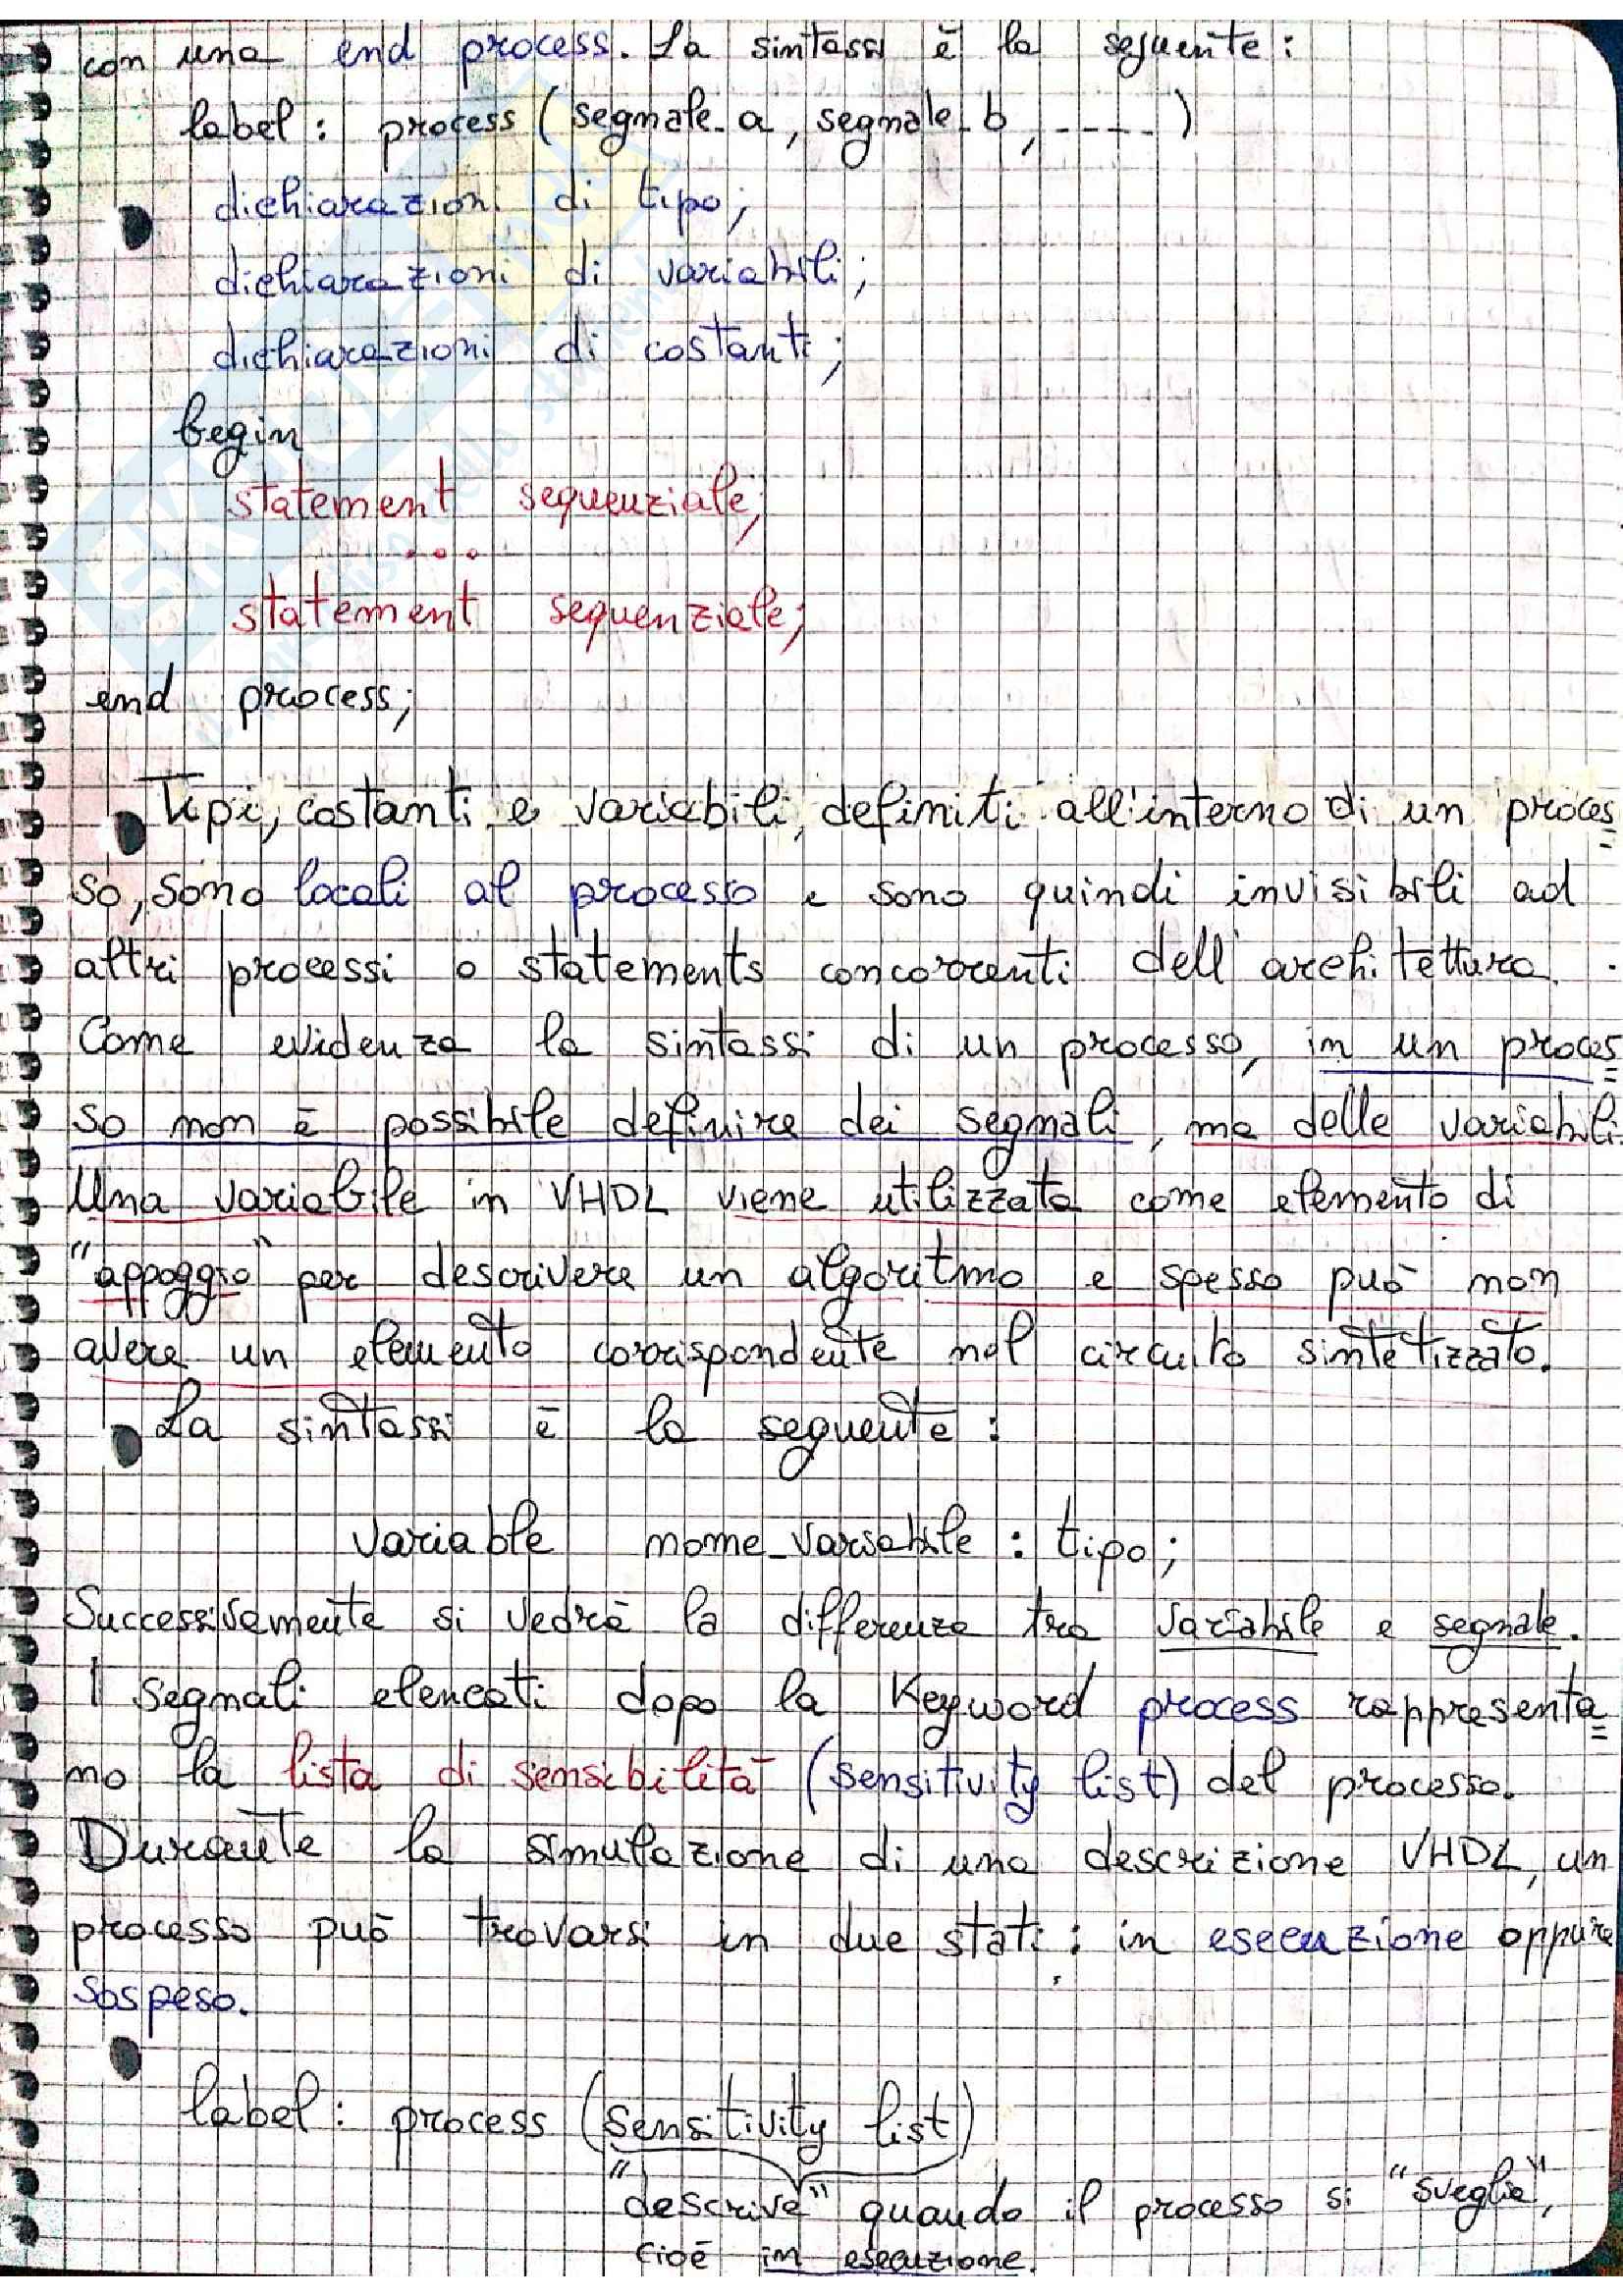 con una end process. La sintassi è la seguente:
label: process (segnale_a, segnale_b, ----)
dichiarazioni di tipo;
dichiarazioni di variabili;
dichiarazioni di costanti;
begin
statement sequenziale;
...
statement sequenziale;
end process;
Tipi, costanti e variabili, definiti all'interno di un proces
so, sono locali al processo e sono quindi invisibili ad
altri processi o statements concorrenti dell'architettura.
Come evidenza la sintassi di un processo, in un proces
so non è possibile definire dei segnali, ma delle variabili.
Una variabile in VHDL viene utilizzata come elemento di
"appoggio" per descrivere un algoritmo e spesso può non
avere un elemento corrispondente nel circuito sintetizzato.
La sintassi è la seguente:
variable nome_variabile : tipo;
Successivamente si vedrà la differenza tra variabile e segnale.
I segnali elencati dopo la Keyword process rappresenta
no la lista di sensibilità (sensitivity list) del processo.
Durante la simulazione di una descrizione VHDL, un
processo può trovarsi in due stati: in esecuzione oppure
sospeso.
label: process (sensitivity list)
"descrive" quando il processo si "sveglia",
cioè in esecuzione.